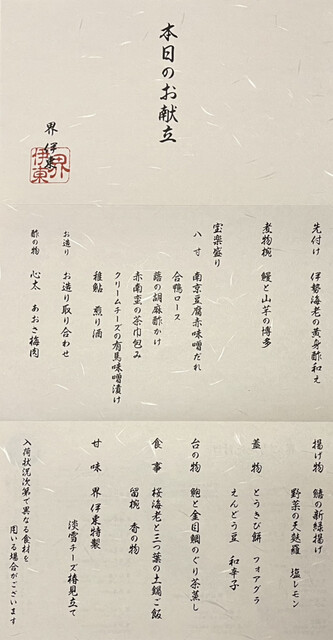 本日のお献立
界 伊東
界伊東
先付け 伊勢海老の黄身酢和え
煮物椀 鰻と山芋の博多
宝楽盛り
八寸 南京豆腐赤味噌だれ
合鴨ロース
蕗の胡麻酢かけ
赤南蛮の茶巾包み
クリームチーズの有馬味噌漬け
稚鮎 煎り酒
お造り お造り取り合わせ
酢の物 心太 あおさ梅肉
揚げ物 鰆の新緑揚げ
野菜の天麩羅 塩レモン
蓋物 とうきび餅 フォアグラ
えんどう豆 和辛子
台の物 鮑と金目鯛のぐり茶蒸し
食事 桜海老と三つ葉の土鍋ご飯
留椀 香の物
甘味 界 伊東特製
淡雪チーズ椿見立て
入荷状況次第で異なる食材を
用いる場合がございます